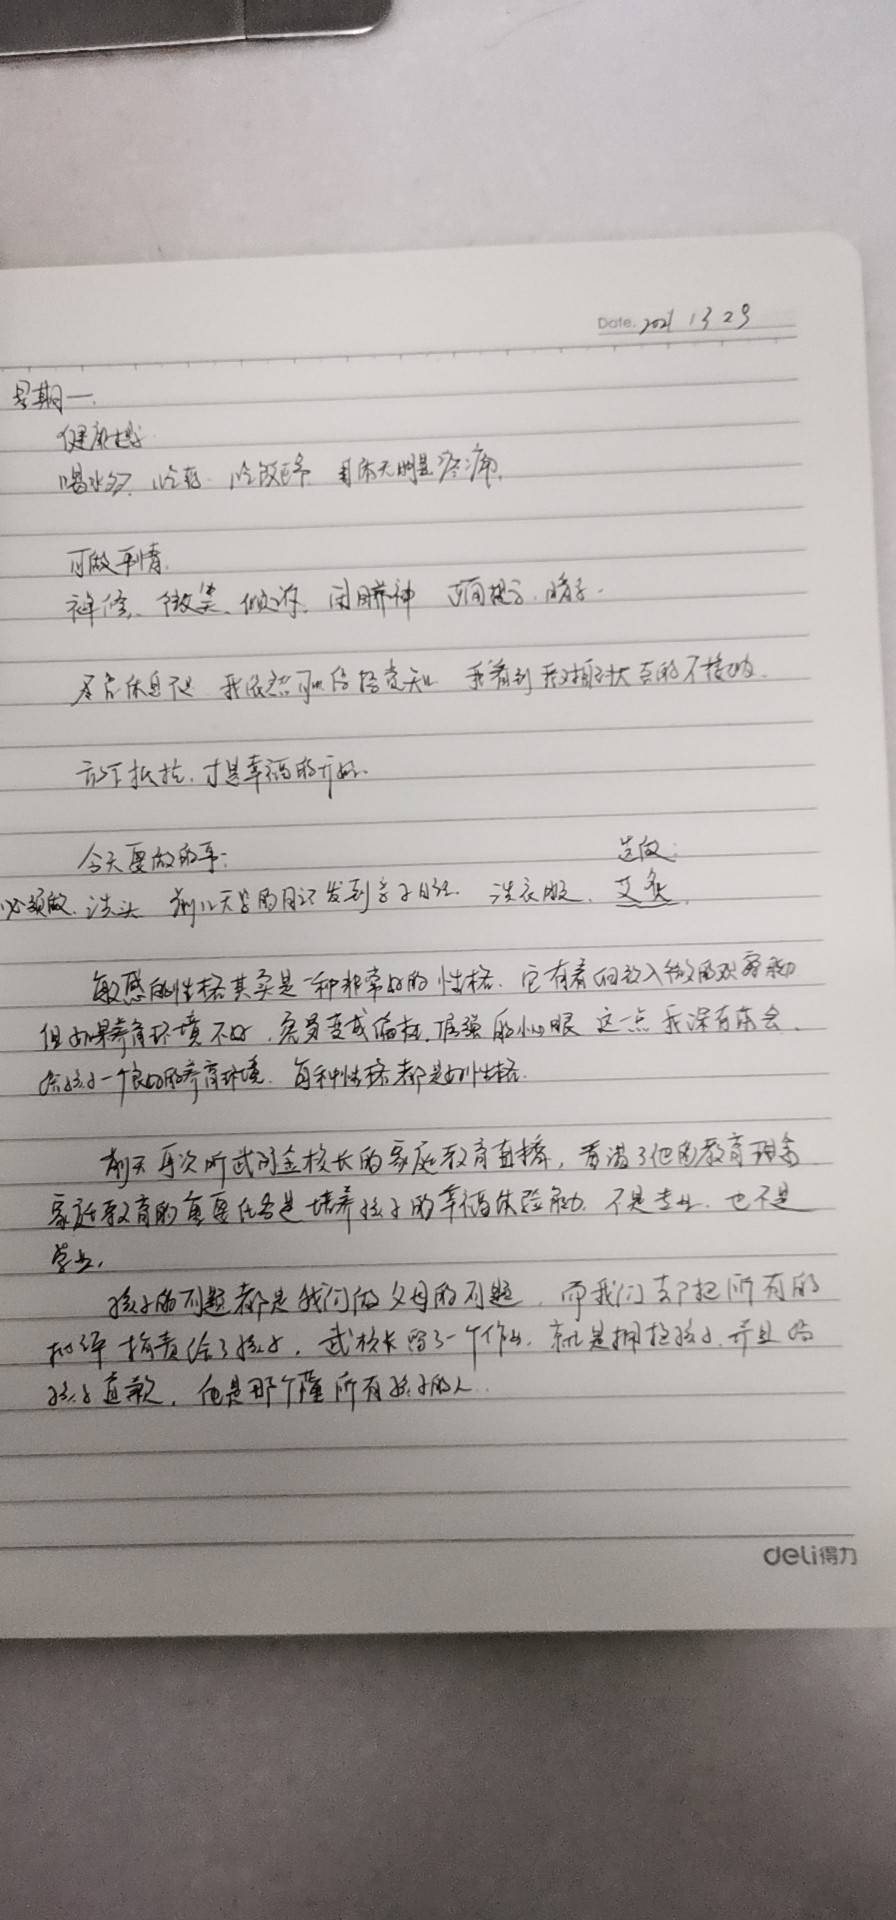 Date. 2021 3 29
星期一.
健康
喝水 吃 吃饭 身体无明显疼痛.
可做事情.
禅修、微笑、倾听、闭目养神
尽 休息 我依然可以保持觉知 我看到我对 的不接纳.
放下抵抗,才是幸福的开始.
今天要做的事: 选做:
必须做. 洗头 前几天写的日记发到亲子日记. 洗衣服、 艾灸.
敏感的性格其实是一种非常好的性格、它有着细致入微的观察能力
但如果养育环境不好,容易变成偏执,倔强的小心眼 这一点我深有体会.
给孩子一个良好的养育环境. 每种性格都是好性格.
前天再次听武 金校长的家庭教育直播, 了他的教育理念
家庭教育的重要任务是培养孩子的幸福体验能力. 不是专业. 也不是
学业.
孩子的问题都是我们做父母的问题,而我们却把所有的
批评指责给了孩子,武校长留了一个作业.就是拥抱孩子.并且给
孩子道歉,他是那个懂所有孩子的人.
deli得力